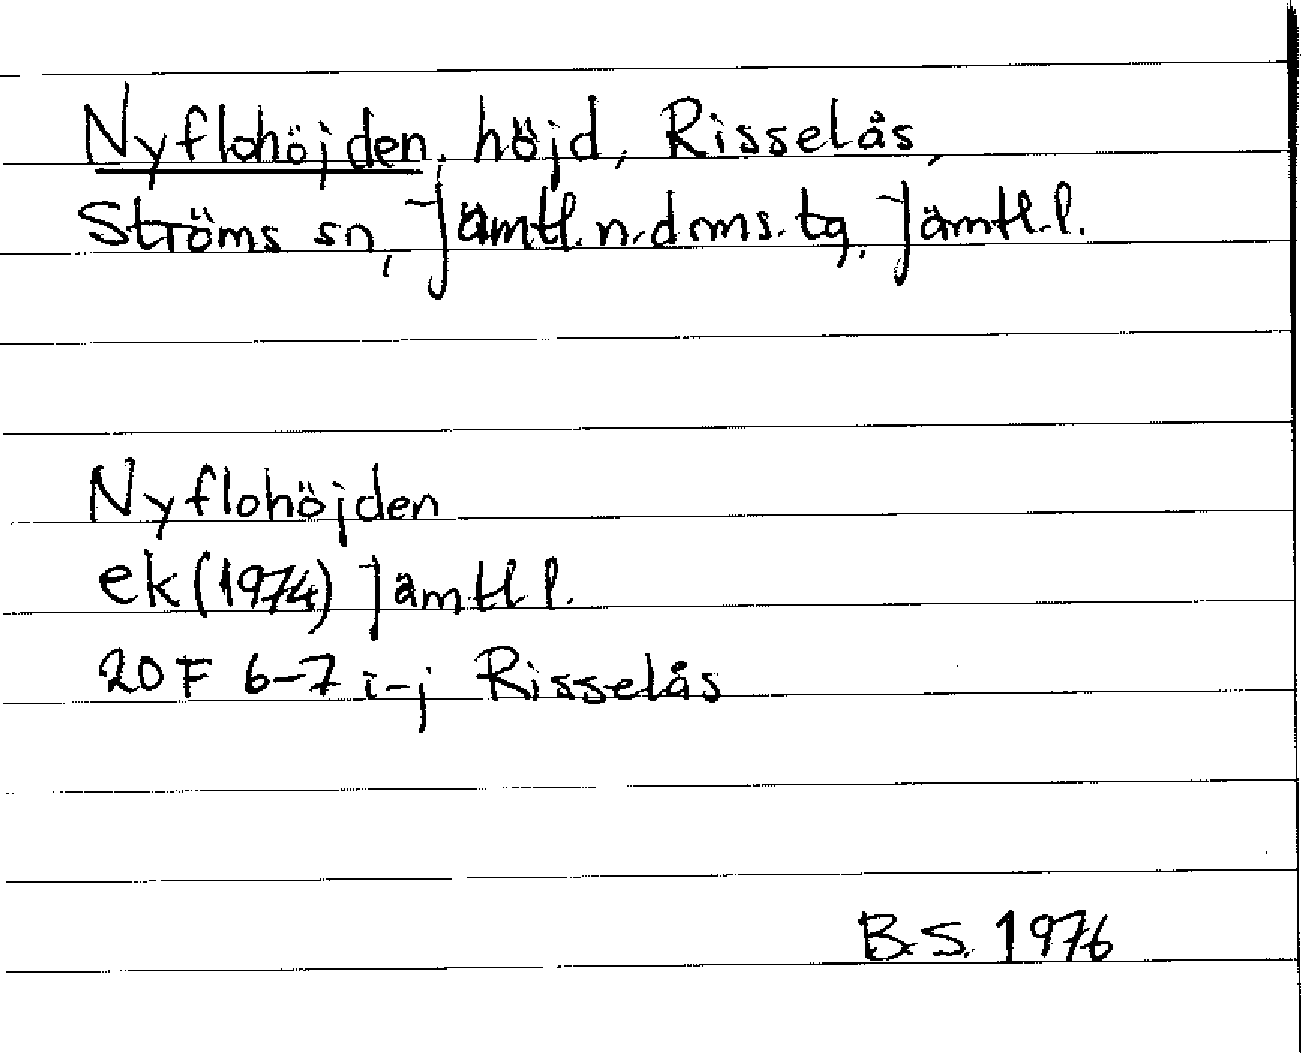 Nyflohöjden, höjd, Risselås,
Ströms sn, Jämtl. n. doms. tg, Jämtl. l.
Nyflohöjden
ek (1974) Jämtl l.
20F 6-7 i-j Risselås
B.S. 1976